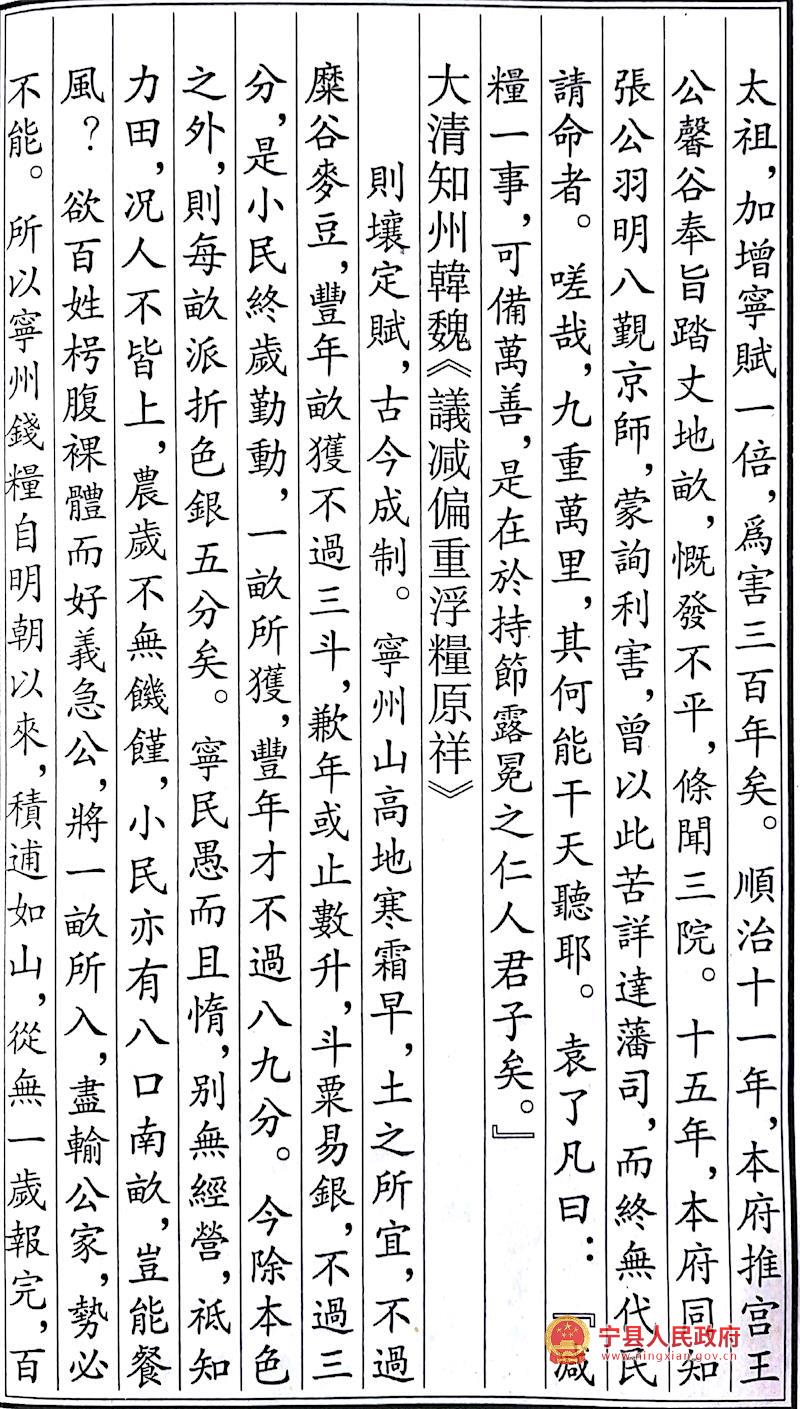 太祖，加增寧賦一倍，爲害三百年矣。順治十一年，本府推宫王
公馨谷奉旨踏丈地畝，慨發不平，條聞三院。十五年，本府同知
張公羽明八觀京師，蒙詢利害，曾以此苦詳達藩司，而終無代民
請命者。嗟哉，九重萬里，其何能干天聽耶。袁了凡曰：『减
糧一事，可備萬善，是在於持節露冕之仁人君子矣。』
大清知州韓魏《議减偏重浮糧原祥》
則壤定賦，古今成制。寧州山高地寒霜早，土之所宜，不過
糜谷麥豆，豐年畝獲不過三斗，歉年或止數升，斗粟易銀，不過三
分，是小民終歲勤動，一畝所獲，豐年才不過八九分。今除本色
之外，則每畝派折色銀五分矣。寧民愚而且惰，別無經營，祗知
力田，况人不皆上，農歲不無饑饉，小民亦有八口南畝，豈能餐
風？欲百姓枵腹裸體而好義急公，將一畝所入，盡輸公家，勢必
不能。所以寧州錢糧自明朝以來，積逋如山，從無一歲報完，百
宁县人民政府
www.ningxian.gov.cn